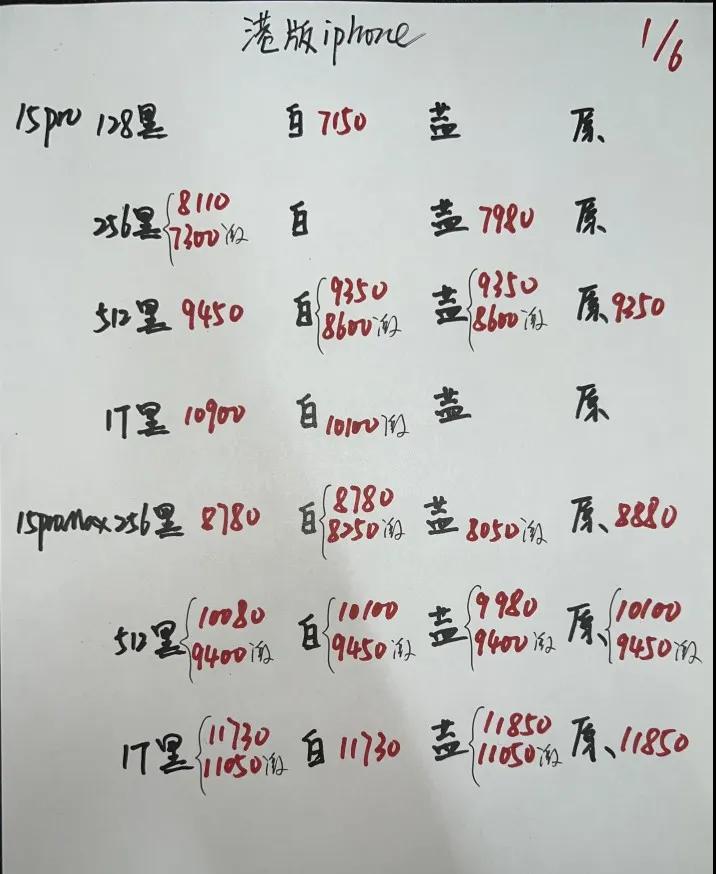 港版iphone 1/6
15pro 128黑 白7150 蓝 原
256黑{8110 7300激 白 蓝7980 原
512黑 9450 白{9350 8600激 蓝{9350 8600激 原9250
1T黑 10900 白10100激 蓝 原
15proMax256黑 8780 白{8780 8250激 蓝8050激 原8880
512黑{10080 9400激 白{10100 9450激 蓝{9980 9400激 原{10100 9450激
1T黑{11730 11050激 白11730 蓝{11850 11050激 原11850